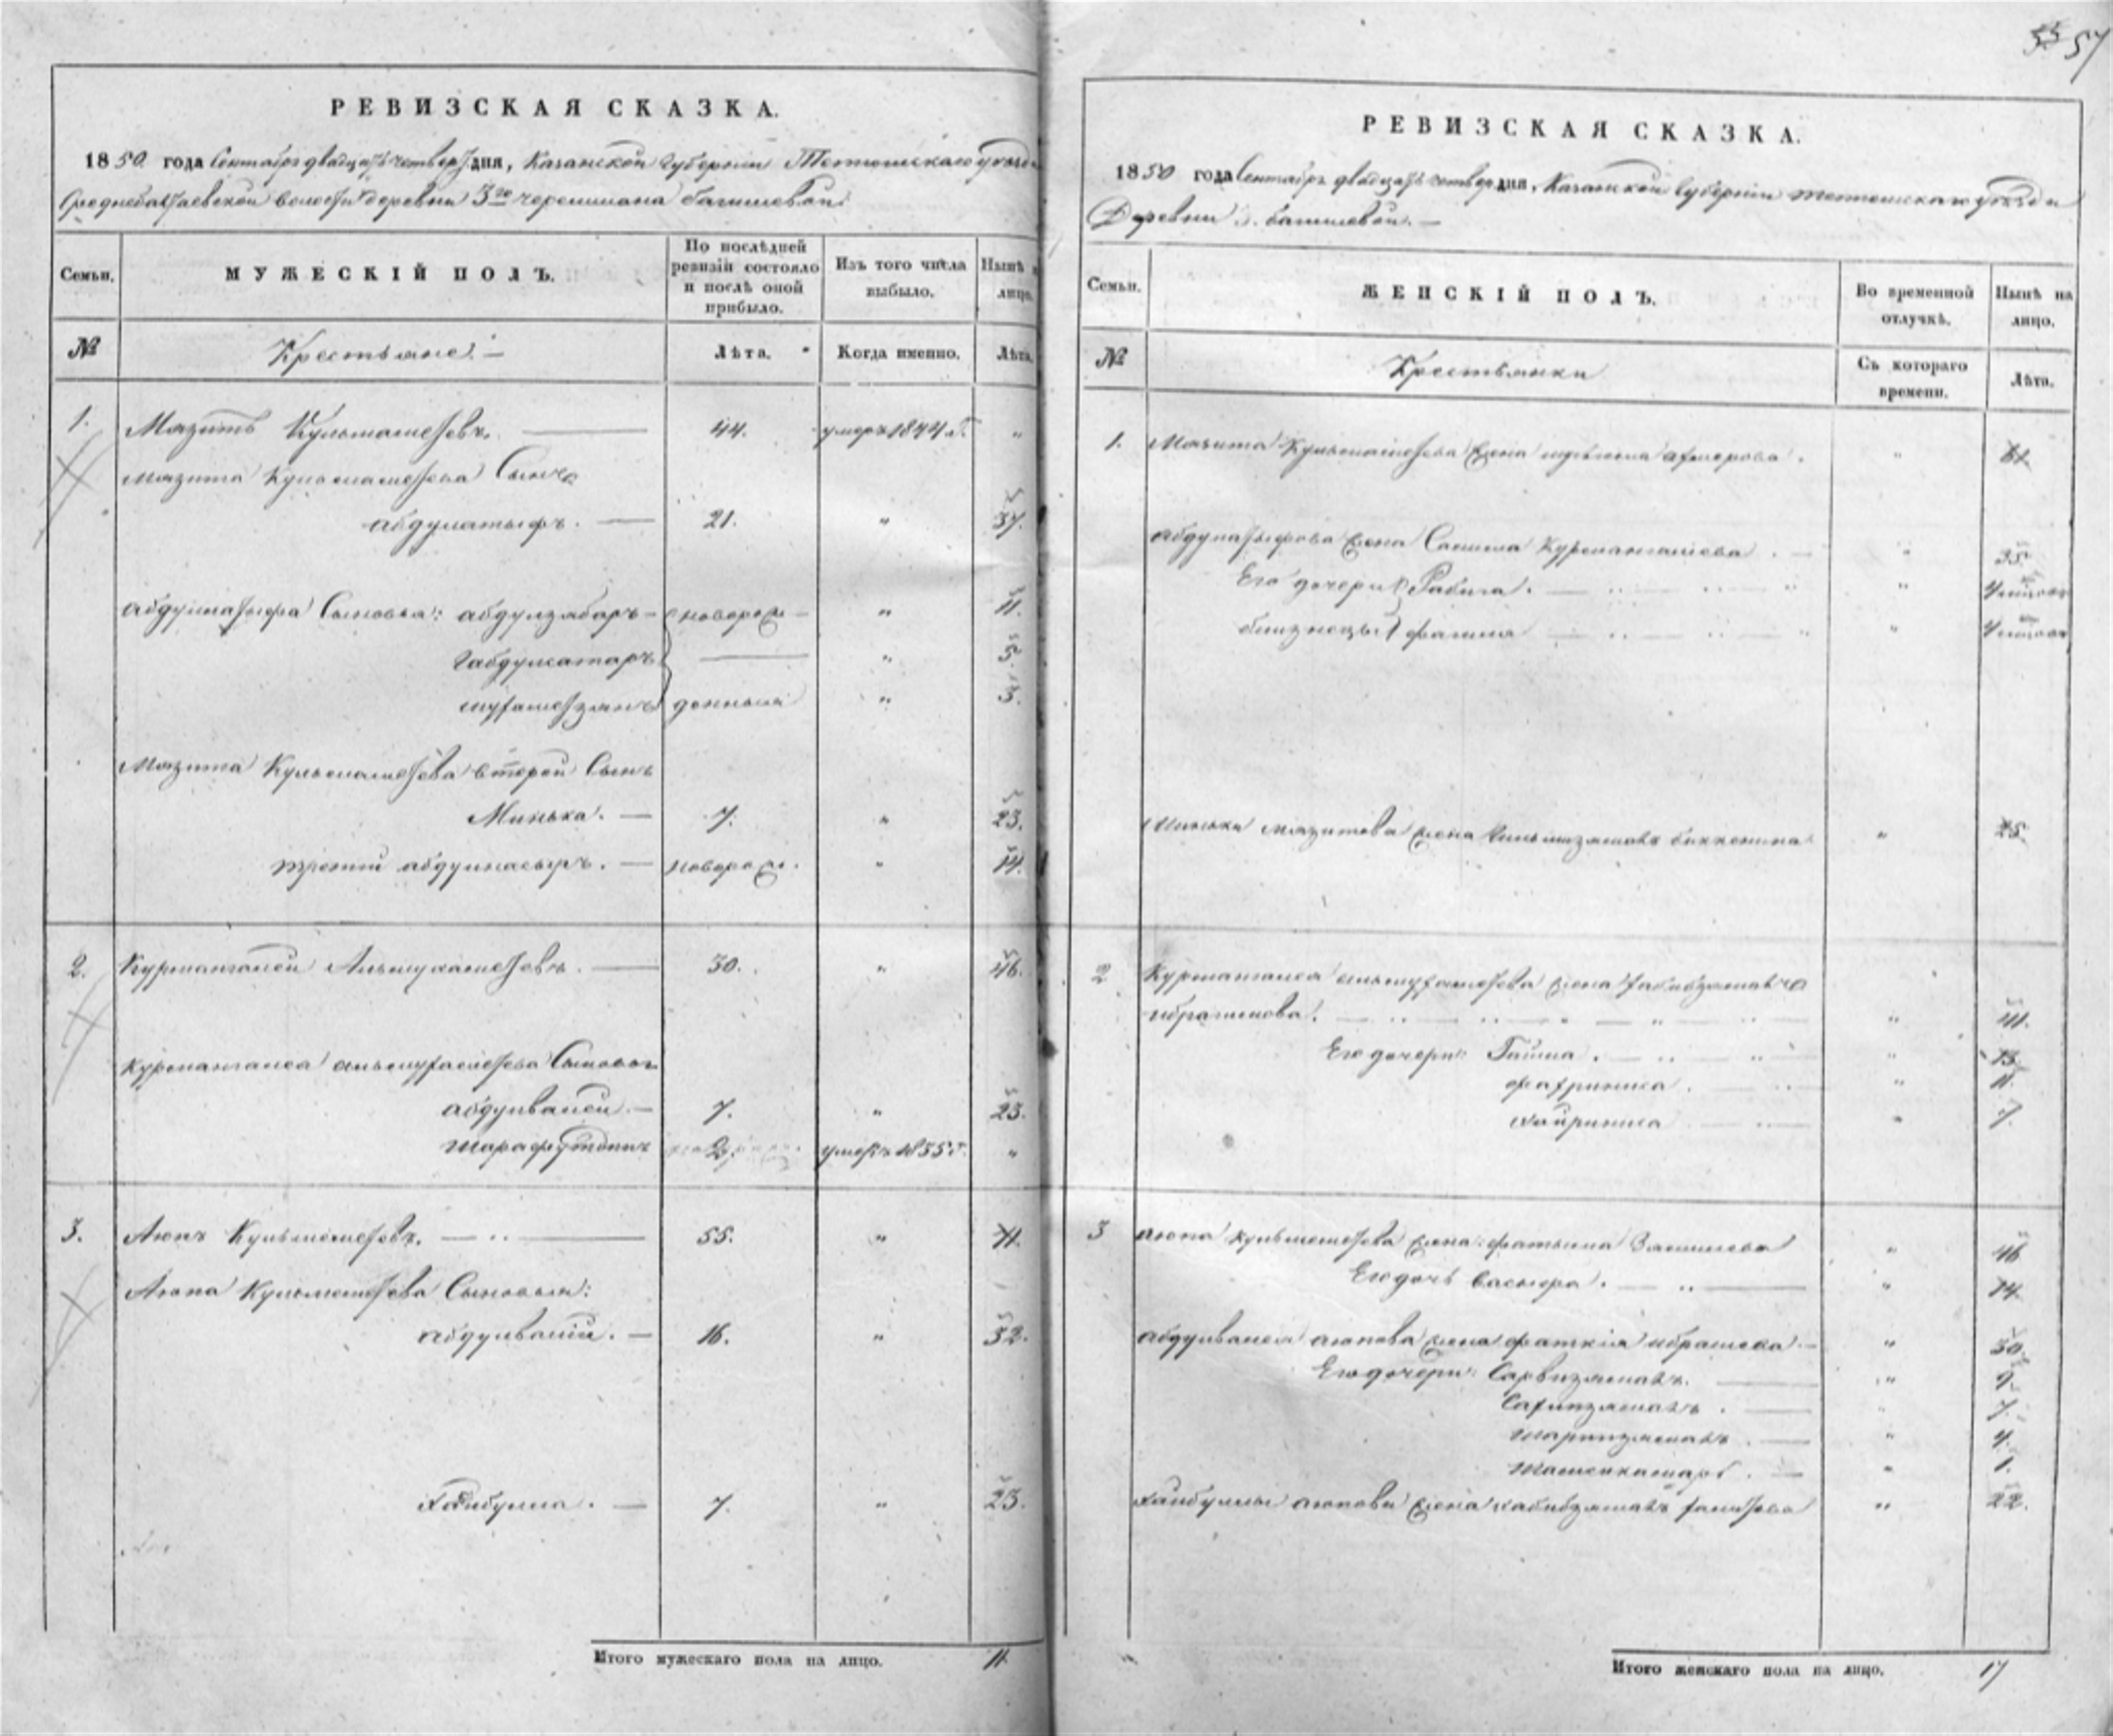 55 57
РЕВИЗСКАЯ СКАЗКА.
1850 года Сентября двадцать четвер дня, Казанской Губернии Тетюшскаго уезда
волости деревни 3го черемшана багишевой
Семьи. МУЖЕСКІЙ ПОЛЪ. По послѣдней ревизіи состояло и послѣ оной прибыло. Изъ того числа выбыло. Нынѣ лицо.
№ Крестьяне Лѣта. Когда именно. Лѣта.
1. Мязитъ Кульмаметевъ. 44. умеръ 1844 г. "
Мязита Кульмаметева Сынъ
абдулатыфъ. 21. " 37.
абдулатыфа Сыновья: абдулзябаръ новорож " 11.
габдулсатаръ " 5.
мухаметзянъ денныя " 3.
Мязита Кульмаметева второй Сынъ
Минька. 7. " 23.
третий абдулнасыръ. новорож. " 14.
2. Курмангалей Альмухаметевъ. 30. " 46.
Курмангалея альмухаметева Сыновья
абдулвалей. 7. " 23.
шарафутдинъ 2. умеръ 1835 г. "
3. Аюпъ Кульмеметевъ. 55. " 71.
Аюпа Кульмеметева Сыновья:
абдулвалій. 16. " 32.
хайбулла. 7. " 23.
Итого мужескаго пола на лицо. 11
РЕВИЗСКАЯ СКАЗКА.
1850 года Сентября двадцать четвер дня, Казанской Губернии тетюшскаго уезда
Деревни 3. багишевой.
Семьи. ЖЕНСКІЙ ПОЛЪ. Во временной отлучкѣ. Нынѣ на лицо.
№ Крестьянки Съ котораго времени. Лѣта.
1. Мязита Кульмаметева жена амерова. "
абдулатыфова жена Салима Курмангалеева " 35.
Его дочери Рабига. "
близнецы фатима "
Миньки мязитова жена биккенина " 25.
2 Курмангалея альмухаметева жена хабибзямалъ
ибрагимова. " 41.
Его дочери: Гайша. " 13.
фахриниса. " 11.
хайриниса " 7.
3 аюпа кульмеметева жена: фатыма " 46
Его дочь васыфа. " 14.
абдулвалея аюпова жена фаткія ибраева " 30.
Его дочери: Сарвизямалъ. " 9.
Сахипзямалъ. " 7.
шарипзямалъ. " 4.
" 1.
хайбуллы аюпова жена хабибзямалъ " 22.
Итого женскаго пола на лицо. 17